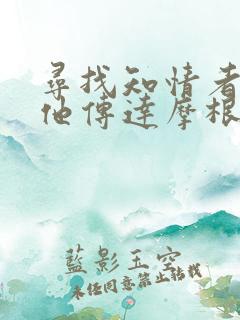 尋找知情者
他傳達摩根
藍影玉空
未经同意禁止转载